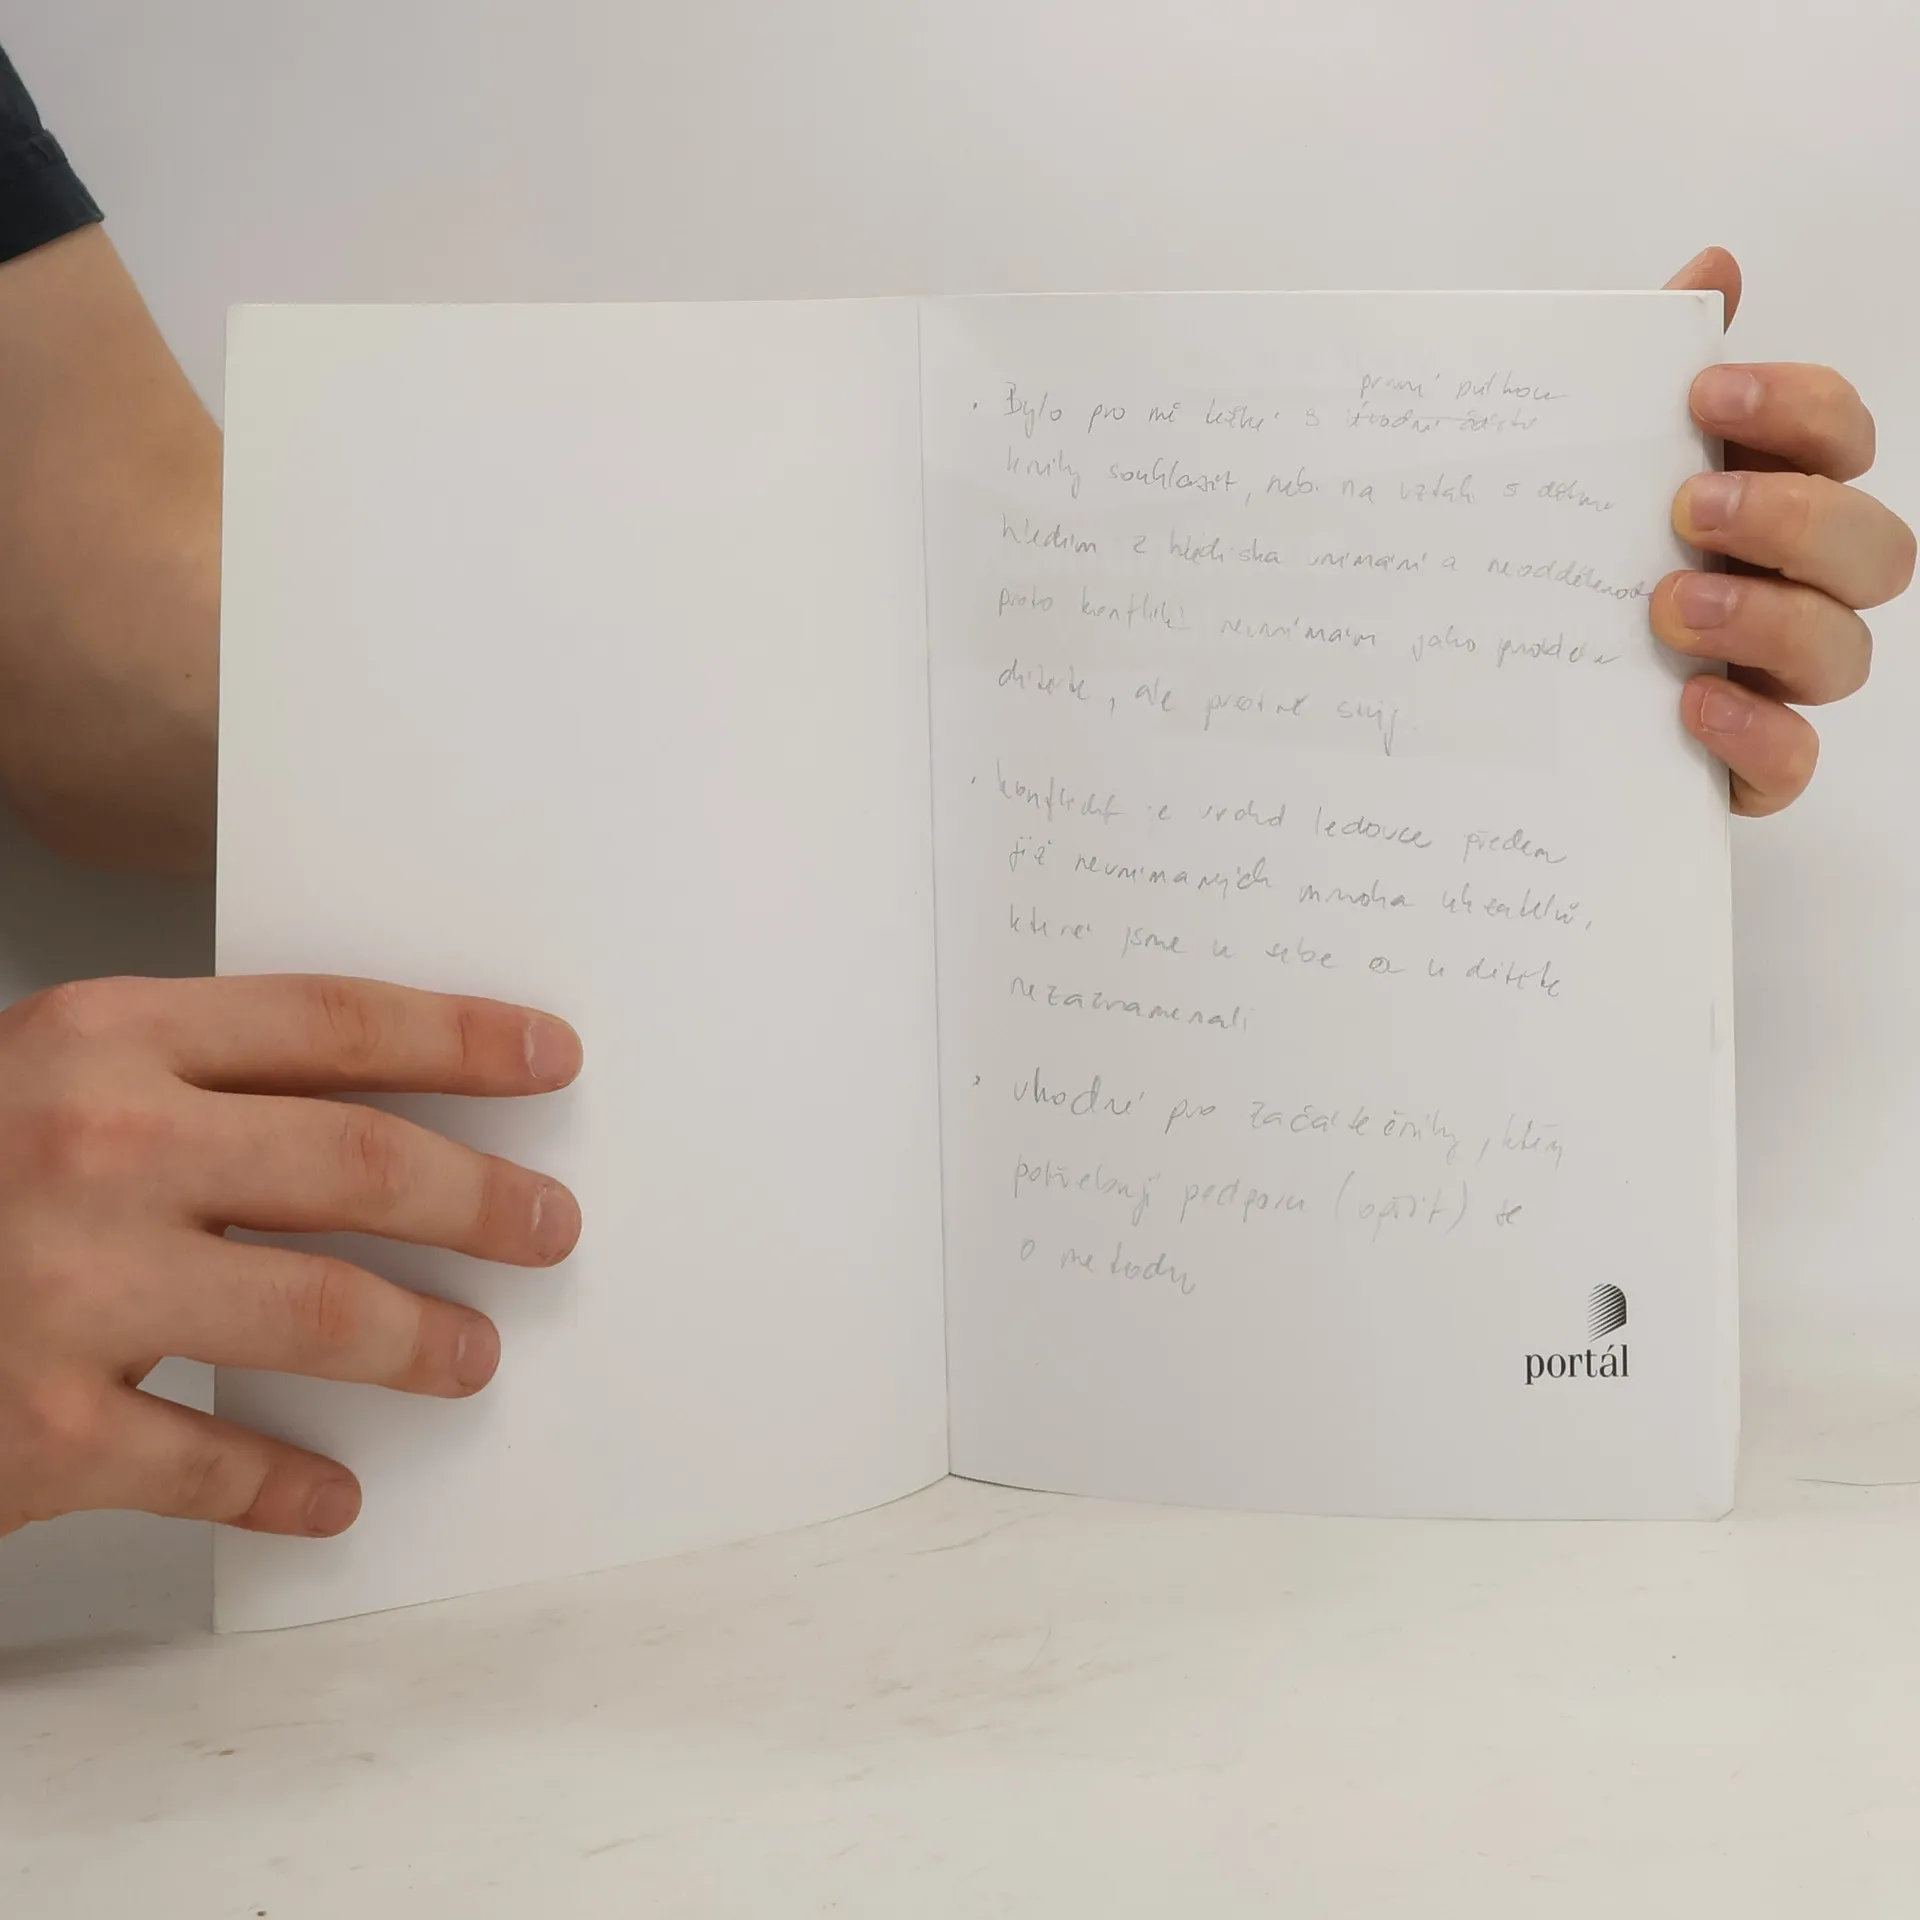 první půlkou
• Bylo pro mě těžké s úvodní částí
knihy souhlasit, neb. na vztah s dětmi
hledím z hlediska vnímání a neoddělenosti
proto konflikt nevnímám jako problém
dítěte, ale prvotně svůj.
• konflikt je vrchol ledovce předem
již nevnímaných mnoha ukazatelů,
které jsme u sebe a u dítěte
nezaznamenali
• vhodné pro začátečníky, kteří
potřebují podporu (opřít) se
o metodu
portál